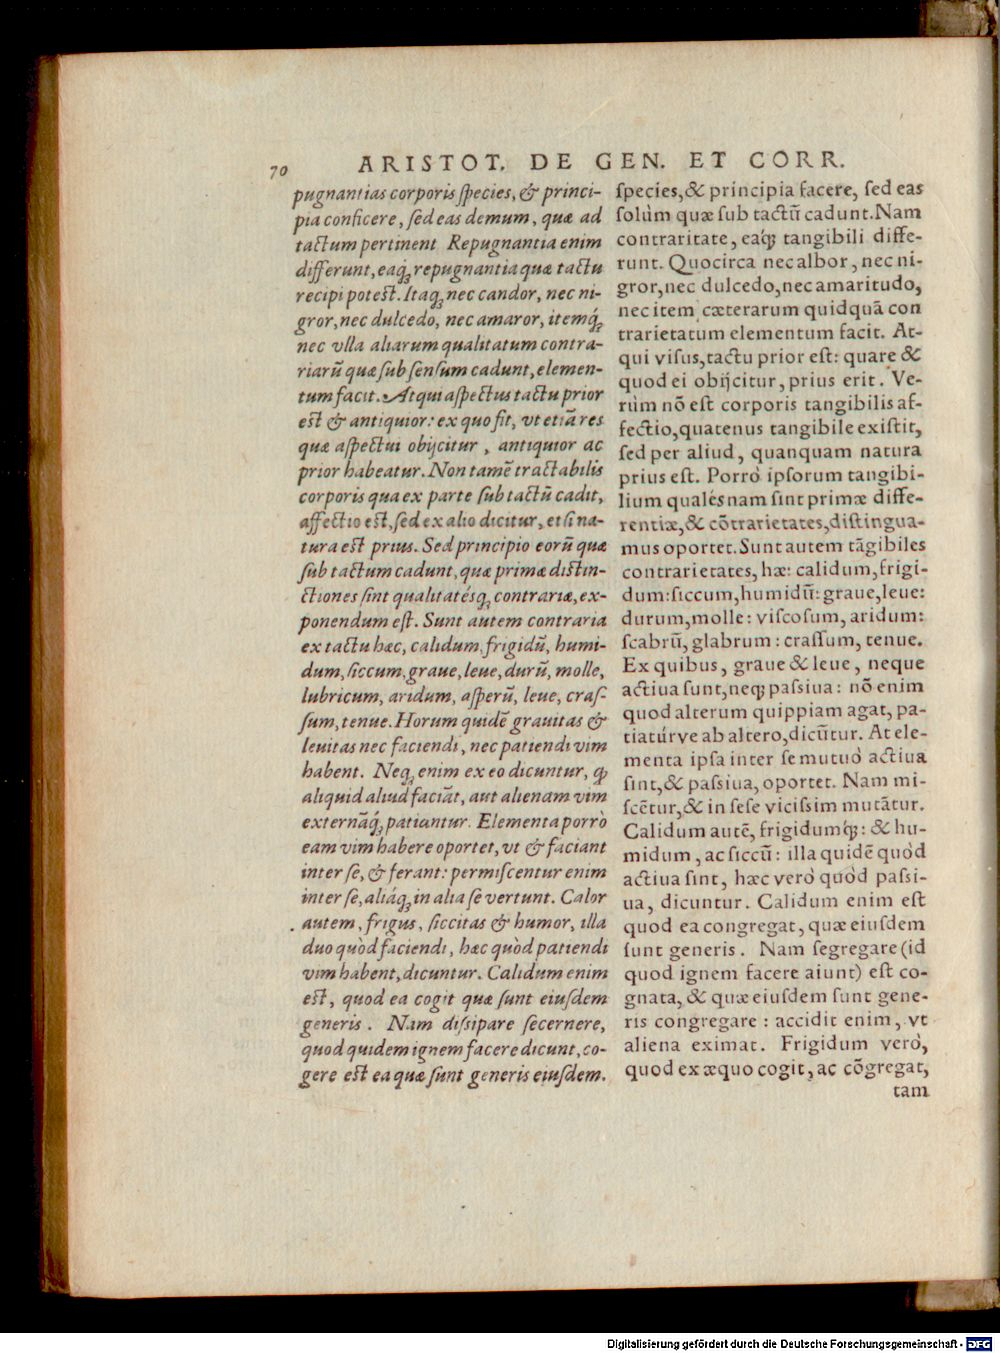 70 ARISTOT. DE GEN. ET CORR.
pugnantias corporis ſpecies, & princi-
pia conficere, ſed eas demum, quæ ad
tactum pertinent Repugnantia enim
differunt, eaq́ꝫ repugnantia quæ tactu
recipi poteſt. Itaqꝫ nec candor, nec ni-
gror, nec dulcedo, nec amaror, itemq́ꝫ
nec vlla aliarum qualitatum contra-
riarũ quæ ſub ſenſum cadunt, elemen-
tum facit. Atqui aſpectus tactu prior
eſt & antiquior: ex quo fit, vt etiã res
quæ aſpectui obijcitur, antiquior ac
prior habeatur. Non tamẽ tractabilis
corporis qua ex parte ſub tactũ cadit,
affectio eſt, ſed ex alio dicitur, et ſi na-
tura eſt prius. Sed principio eorũ quæ
ſub tactum cadunt, quæ primæ diſtin-
ctiones ſint qualitatésqꝫ contrariæ, ex-
ponendum eſt. Sunt autem contraria
ex tactu hæc, calidum, frigidũ, humi-
dum, ſiccum, graue, leue, durũ, molle,
lubricum, aridum, aſperũ, leue, craſ-
ſum, tenue. Horum quidẽ grauitas &
leuitas nec faciendi, nec patiendi vim
habent. Neqꝫ enim ex eo dicuntur, ꝙ
aliquid aliud faciãt, aut alienam vim
externãq́ꝫ patiantur. Elementa porrò
eam vim habere oportet, vt & faciant
inter ſe, & ferant: permiſcentur enim
inter ſe, aliáqꝫ in alia ſe vertunt. Calor
autem, frigus, ſiccitas & humor, illa
duo quòd faciendi, hæc quòd patiendi
vim habent, dicuntur. Calidum enim
eſt, quod ea cogit quæ ſunt eiuſdem
generis. Nam diſsipare ſecernere,
quod quidem ignem facere dicunt, co-
gere eſt ea quæ ſunt generis eiuſdem.
ſpecies, & principia facere, ſed eas
ſolùm quæ ſub tactũ cadunt. Nam
contraritate, eaq́ꝫ tangibili diffe-
runt. Quocirca nec albor, nec ni-
gror, nec dulcedo, nec amaritudo,
nec item cæterarum quidquã con
trarietatum elementum facit. At-
qui viſus, tactu prior eſt: quare &
quod ei obijcitur, prius erit. Ve-
rùm nõ eſt corporis tangibilis af-
fectio, quatenus tangibile exiſtit,
ſed per aliud, quanquam natura
prius eſt. Porrò ipſorum tangibi-
lium qualésnam ſint primæ diffe-
rentiæ, & cõtrarietates, diſtingua-
mus oportet. Sunt autem tãgibiles
contrarietates, hæ: calidum, frigi-
dum: ſiccum, humidũ: graue, leue:
durum, molle: viſcoſum, aridum:
ſcabrũ, glabrum: craſſum, tenue.
Ex quibus, graue & leue, neque
actiua ſunt, neqꝫ paſsiua: nõ enim
quod alterum quippiam agat, pa-
tiatúrve ab altero, dicũtur. At ele-
menta ipſa inter ſe mutuò actiua
ſint, & paſsiua, oportet. Nam mi-
ſcẽtur, & in ſeſe viciſsim mutãtur.
Calidum autẽ, frigidumq́ꝫ: & hu-
midum, ac ſiccũ: illa quidẽ quòd
actiua ſint, hæc verò quòd paſsi-
ua, dicuntur. Calidum enim eſt
quod ea congregat, quæ eiuſdem
ſunt generis. Nam ſegregare (id
quod ignem facere aiunt) eſt co-
gnata, & quæ eiuſdem ſunt gene-
ris congregare: accidit enim, vt
aliena eximat. Frigidum verò,
quod ex æquo cogit, ac cõgregat,
tam
Digitalisierung gefördert durch die Deutsche Forschungsgemeinschaft - DFG